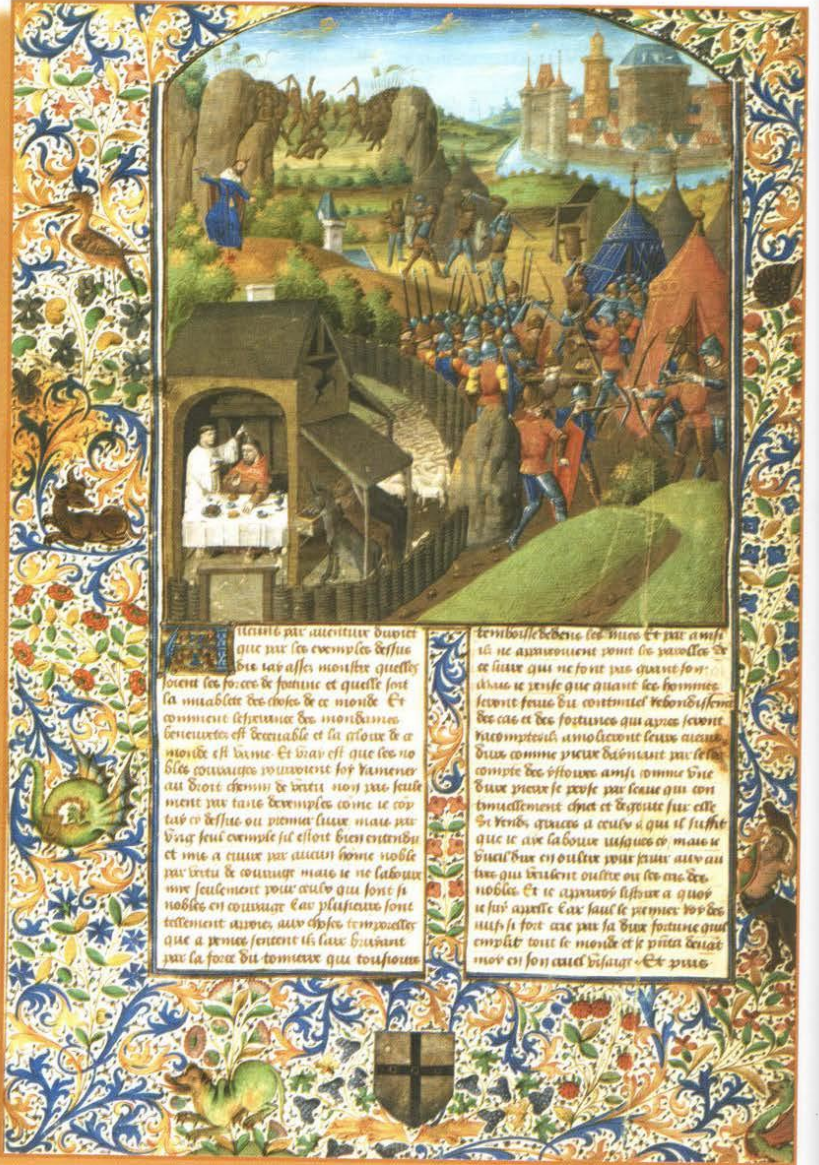 Aucuns par aventure diront
que par les exemples dessus
dis iay assez monstre quelles
soient les forces de fortune et quelle soit
la muablete des choses de ce monde Et
comment lesperance des mondaines
beneuretes est decevable et la gloire de ce
monde est vaine Et vray est que les no
bles courages pourroient soy ramener
au droit chemin de vertu non pas seule
ment par tans dexemples come ie
cy dessus ou premier livre mais par
ung seul exemple sil estoit bien entendu
et mis a par aucun home noble
par vertu de courage mais ie ne laboure
mie seulement pour ceulx qui sont si
nobles en courage Car plusieurs sont
tellement aux choses temporelles
que a peines sentent ils lair bruyant
par la force du tonnerre qui tousiours
dedens les nues Et par ainsi
ilz ne point les parolles de
ce livre qui ne font pas grant son
Mais ie pense que quant les hommes
seront feruz du continuel rebondissement
des cas et des fortunes qui apres seront
racomptees ilz amolieront leurs cueurs
durs comme pierre daymant par le
compte des ystoires ainsi comme une
dure pierre se perse par leaue qui con
tinuellement chiet et degoute sur elle
Si rends graces a ceulx a qui il suffit
que ie aye laboure iusques cy mais ie
vueil dire en oultre pour aux au
tres qui veulent oultre les cas des
nobles Et ie listoire a quoy
ie suy appelle Car saul le premier roy des
iuifs si fort crie par sa dure fortune quil
emplit tout le monde et se devant
moy en son cruel visaige Et puis